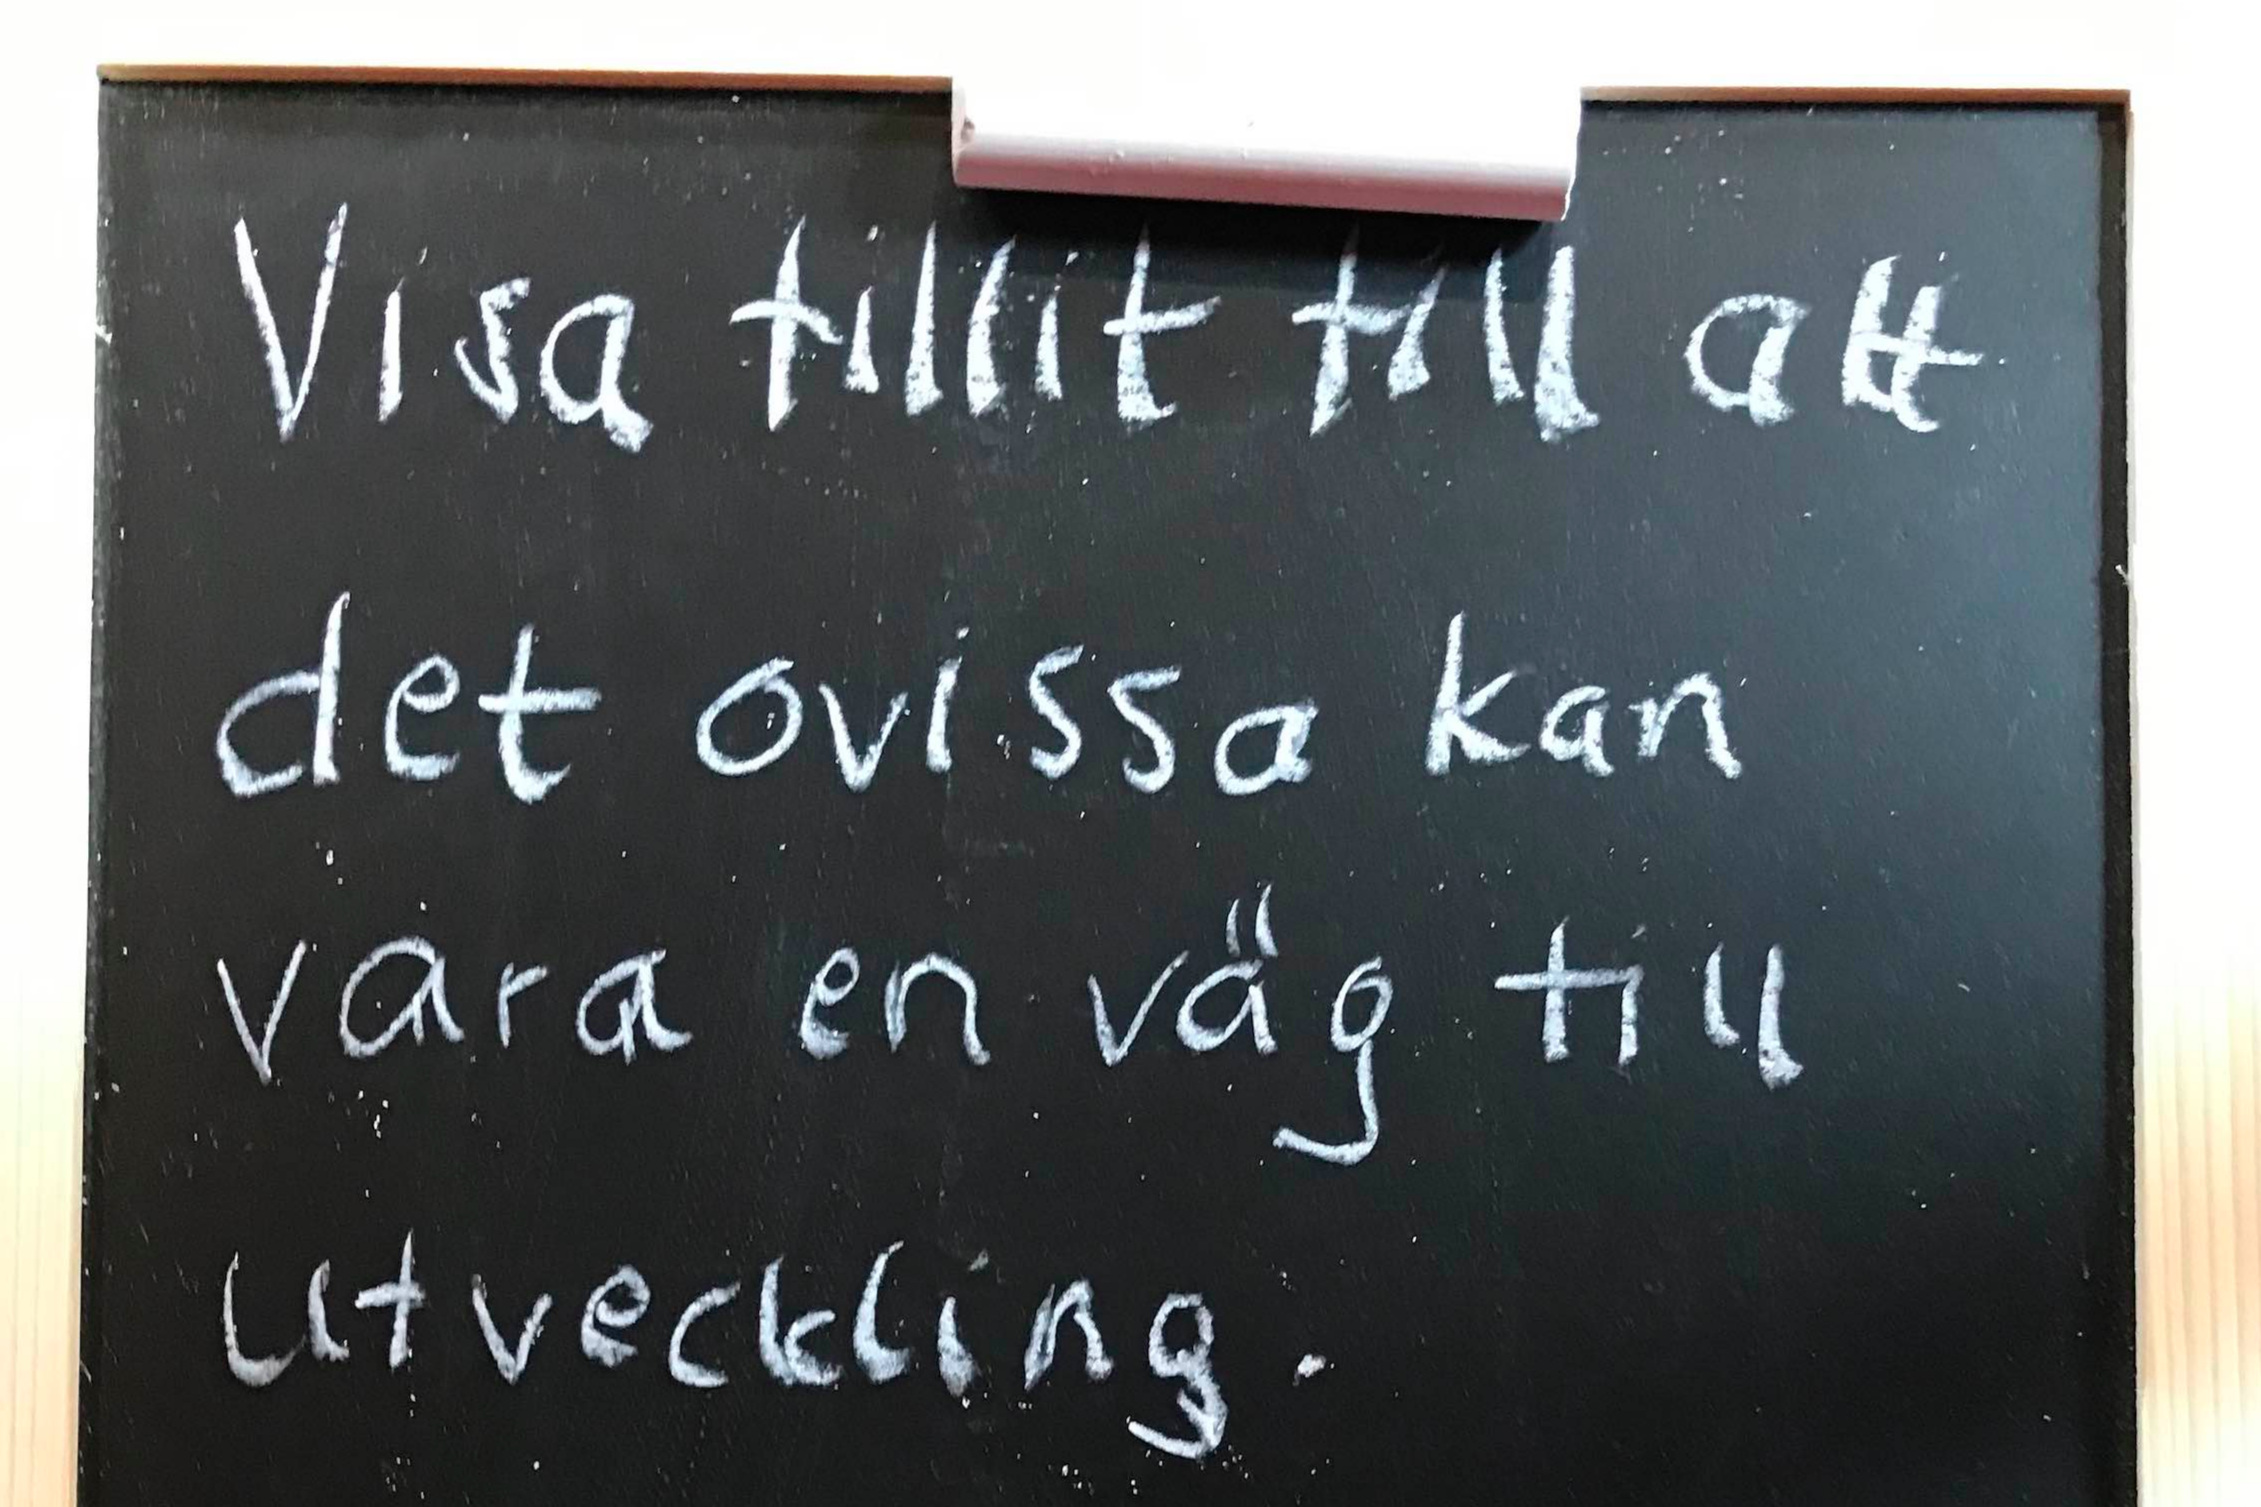 Visa tillit till att
det ovissa kan
vara en väg till
utveckling.